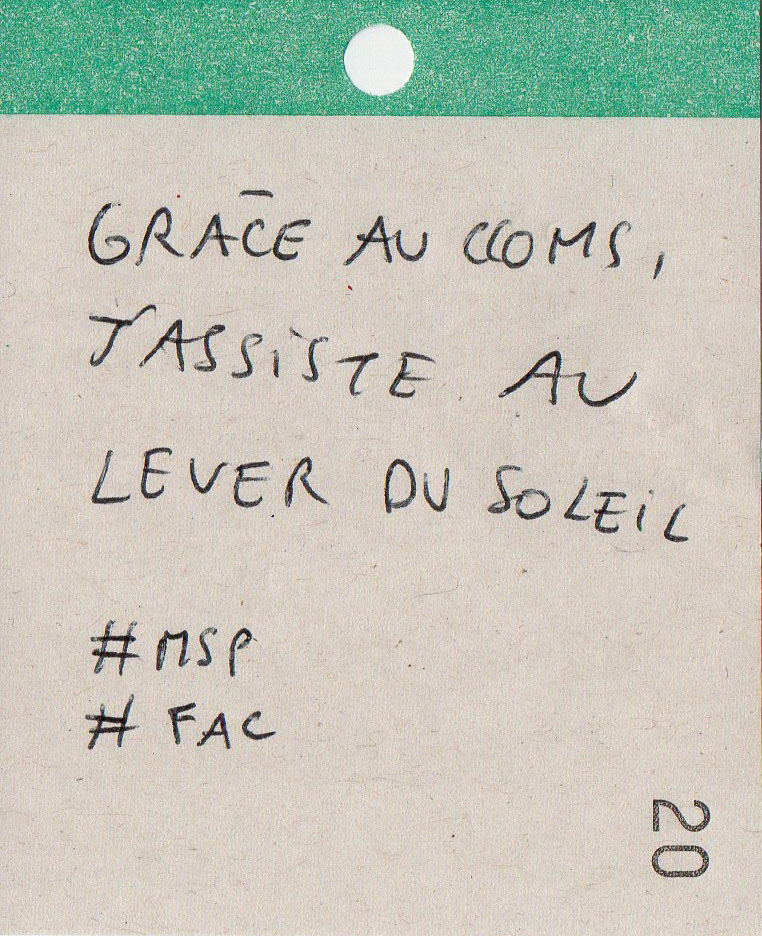 GRĀCE AU CCOMS,
J'ASSISTE AU
LEVER DU SOLEIL
#MSP
# FAC
20